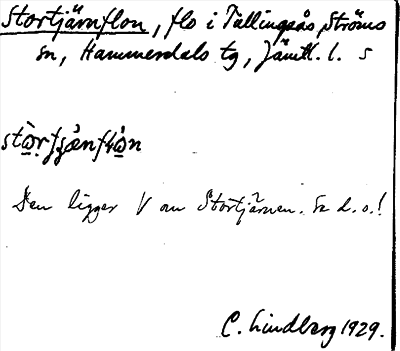 Stortjärnflon, flo i Tullingsås, Ströms
sn, Hammerdals tg, Jämtl. l. S
Den ligger V om Stortjärnen. Se d. o.!
C. Lindberg 1929.